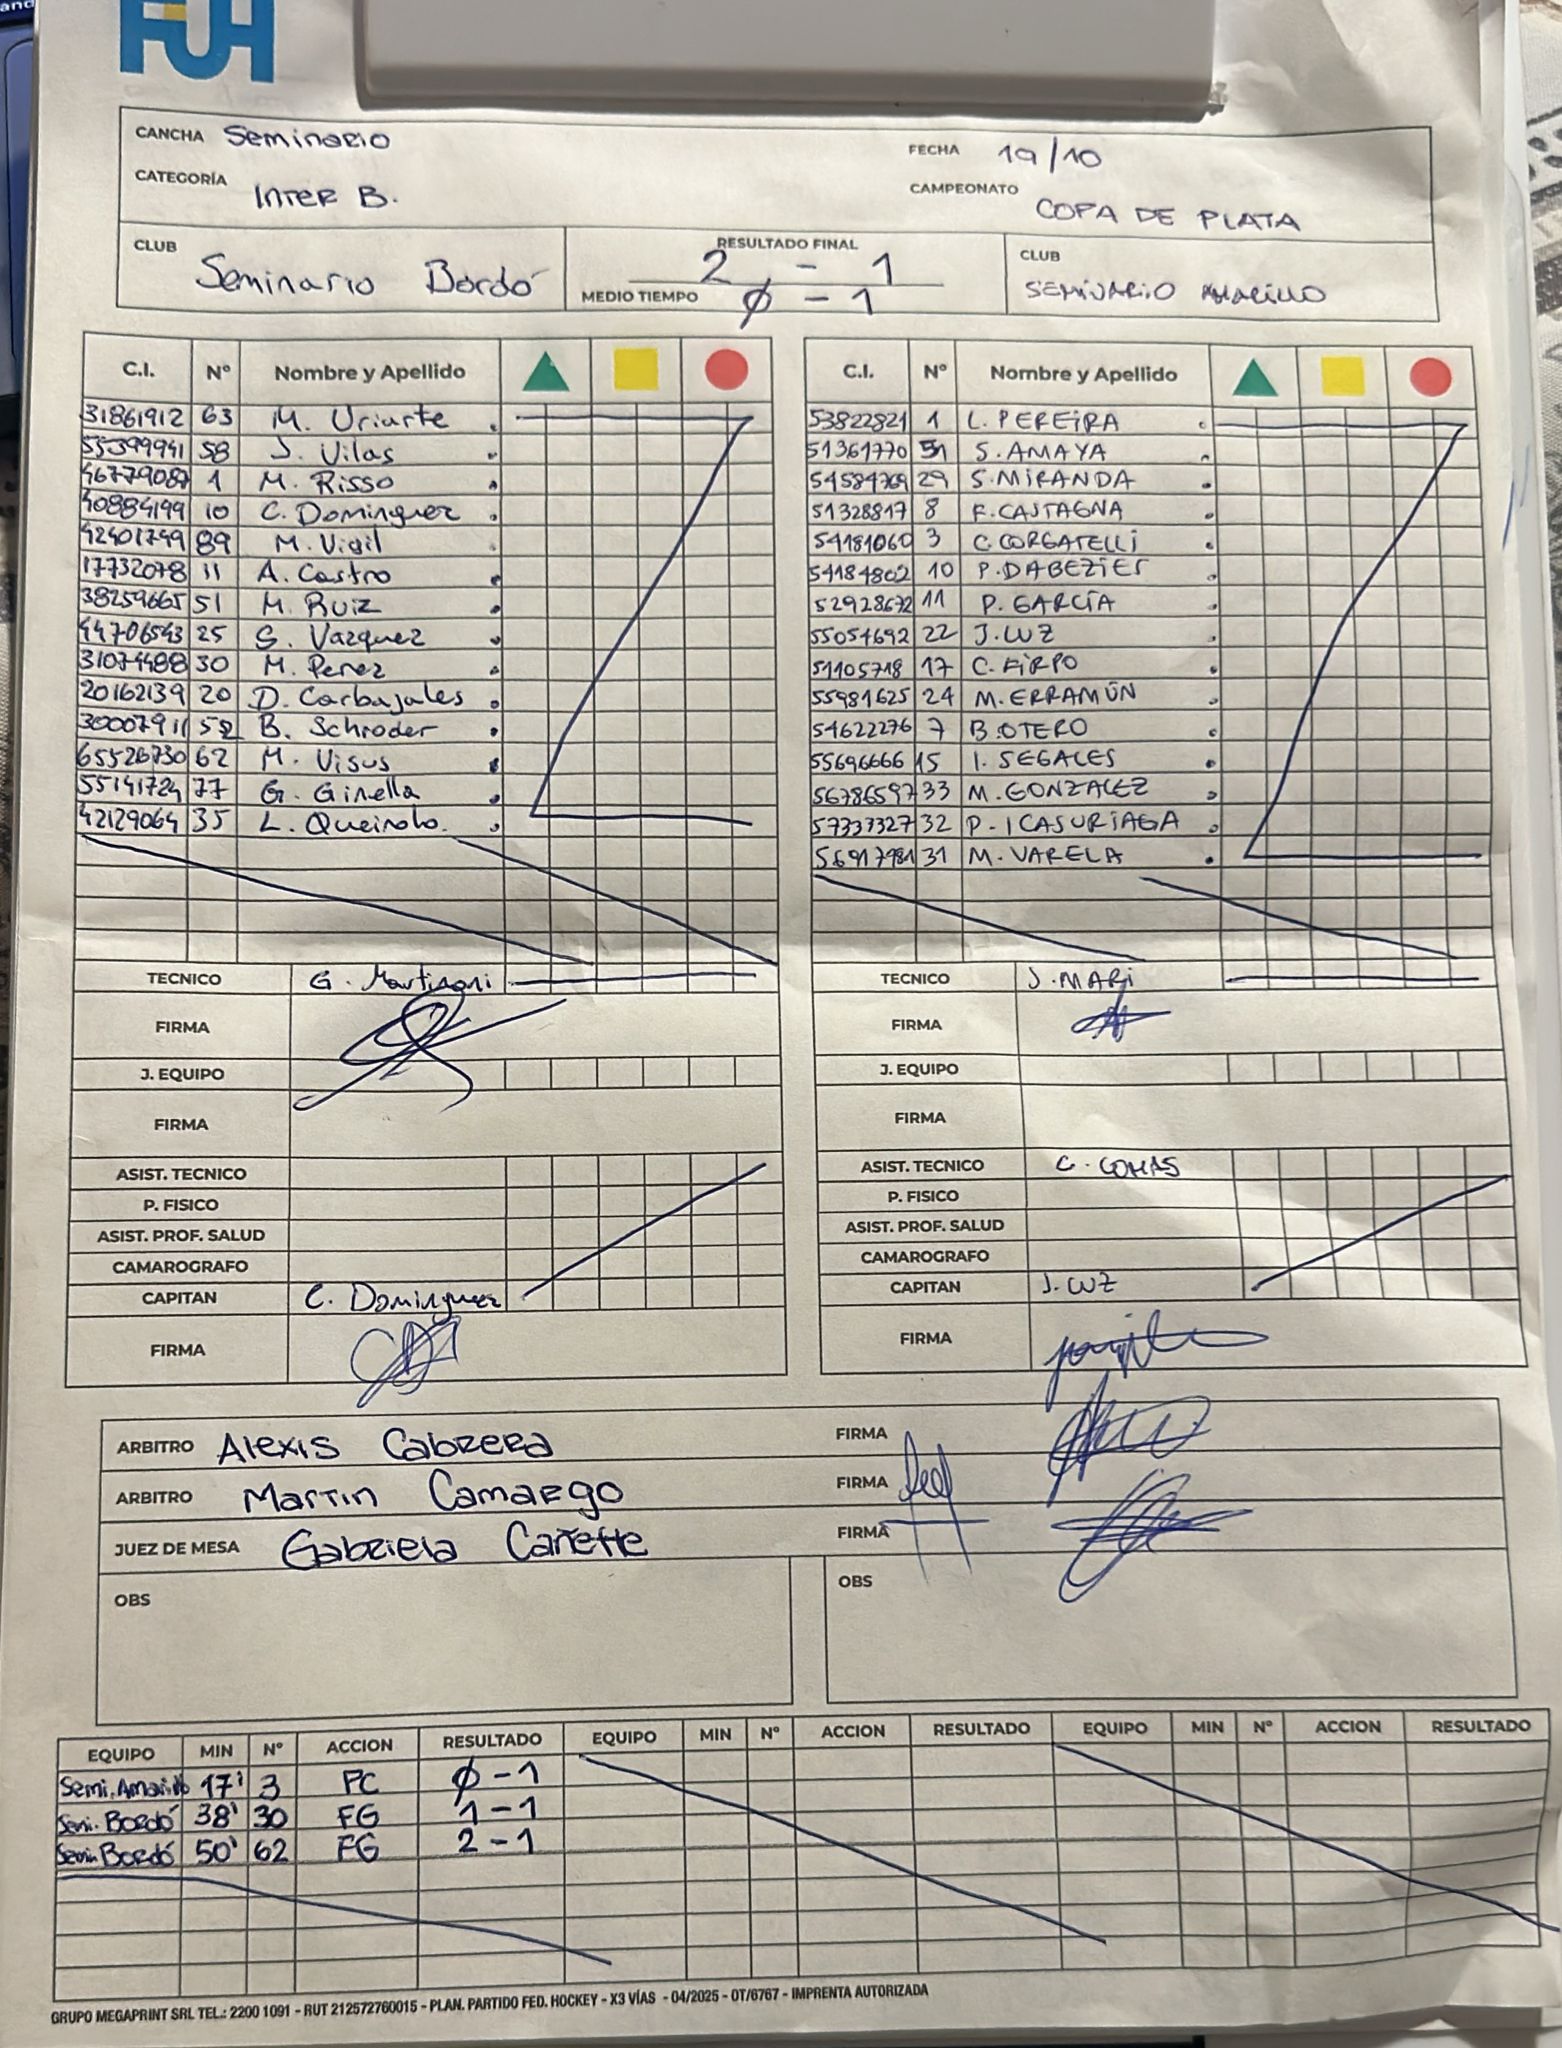 FUH
CANCHA Seminario
FECHA 19/10
CATEGORÍA Inter B.
CAMPEONATO COPA DE PLATA
CLUB Seminario Bordó
RESULTADO FINAL 2 - 1
MEDIO TIEMPO Ø - 1
CLUB SEMINARIO AMARILLO
C.I. Nº Nombre y Apellido
31861912 63 M. Uriarte
55399941 58 J. Vilas
46779087 1 M. Risso
40884199 10 C. Dominguez
42401749 89 M. Vigil
17732078 11 A. Castro
38259665 51 M. Ruiz
44706543 25 S. Vazquez
31074488 30 M. Perez
20162139 20 D. Carbajales
30007911 52 B. Schroder
65526730 62 M. Visus
55141724 77 G. Ginella
42129064 35 L. Queirolo.
TECNICO G. Martinoni
FIRMA
J. EQUIPO
FIRMA
ASIST. TECNICO
P. FISICO
ASIST. PROF. SALUD
CAMAROGRAFO
CAPITAN C. Dominguez
FIRMA
C.I. Nº Nombre y Apellido
53822821 1 L. PEREIRA
51361770 51 S. AMAYA
54584769 29 S. MIRANDA
51328817 8 F. CASTAGNA
54181060 3 C. CORGATELLI
54184802 10 P. DABEZIES
52928672 11 P. GARCÍA
55054692 22 J. LUZ
51105718 17 C. FIRPO
55981625 24 M. ERRAMÚN
54622276 7 B. OTERO
55696666 15 I. SEGALES
56786597 33 M. GONZALEZ
57337327 32 P. ICASURIAGA
56917981 31 M. VARELA
TECNICO J. MARI
FIRMA
J. EQUIPO
FIRMA
ASIST. TECNICO C. COMAS
P. FISICO
ASIST. PROF. SALUD
CAMAROGRAFO
CAPITAN J. LUZ
FIRMA
ARBITRO Alexis Cabrera FIRMA
ARBITRO Martin Camargo FIRMA
JUEZ DE MESA Gabriela Cañette FIRMA
OBS
OBS
EQUIPO MIN Nº ACCION RESULTADO EQUIPO MIN Nº ACCION RESULTADO EQUIPO MIN Nº ACCION RESULTADO
Semi. Amarillo 17' 3 PC Ø - 1
Semi. Bordó 38' 30 FG 1 - 1
Semi. Bordó 50' 62 FG 2 - 1
GRUPO MEGAPRINT SRL TEL.: 2200 1091 - RUT 212572760015 - PLAN. PARTIDO FED. HOCKEY - X3 VÍAS - 04/2025 - OT/6767 - IMPRENTA AUTORIZADA